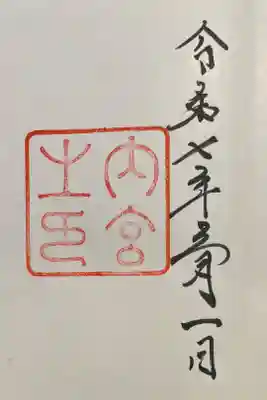 令和七年
月一日
内宮
之印